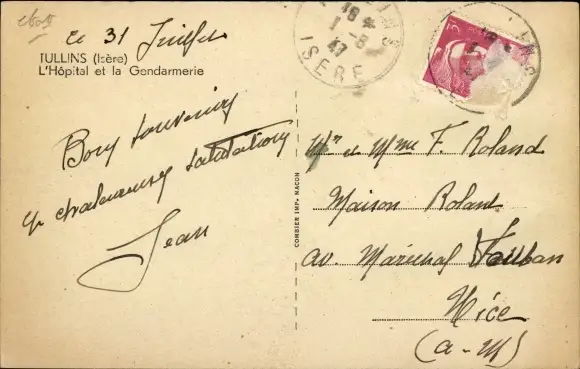 ce 31 Juillet
TULLINS (Isère)
L'Hôpital et la Gendarmerie
Bons souvenirs
et chaleureuses salutations
Jean
COMBIER IMP. MACON
TULLINS
18
1-8
47
ISÈRE
Mr et Mme F. Roland
Maison Roland
av. Maréchal Vauban
Nice
(A-M)